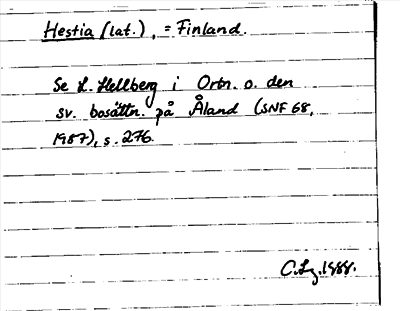 Hestia (lat.), = Finland.
Se L. Hellberg i Ortn. o. den
sv. bosättn. på Åland (SNF 68,
1987), s. 276.
C.Lz. 1988.